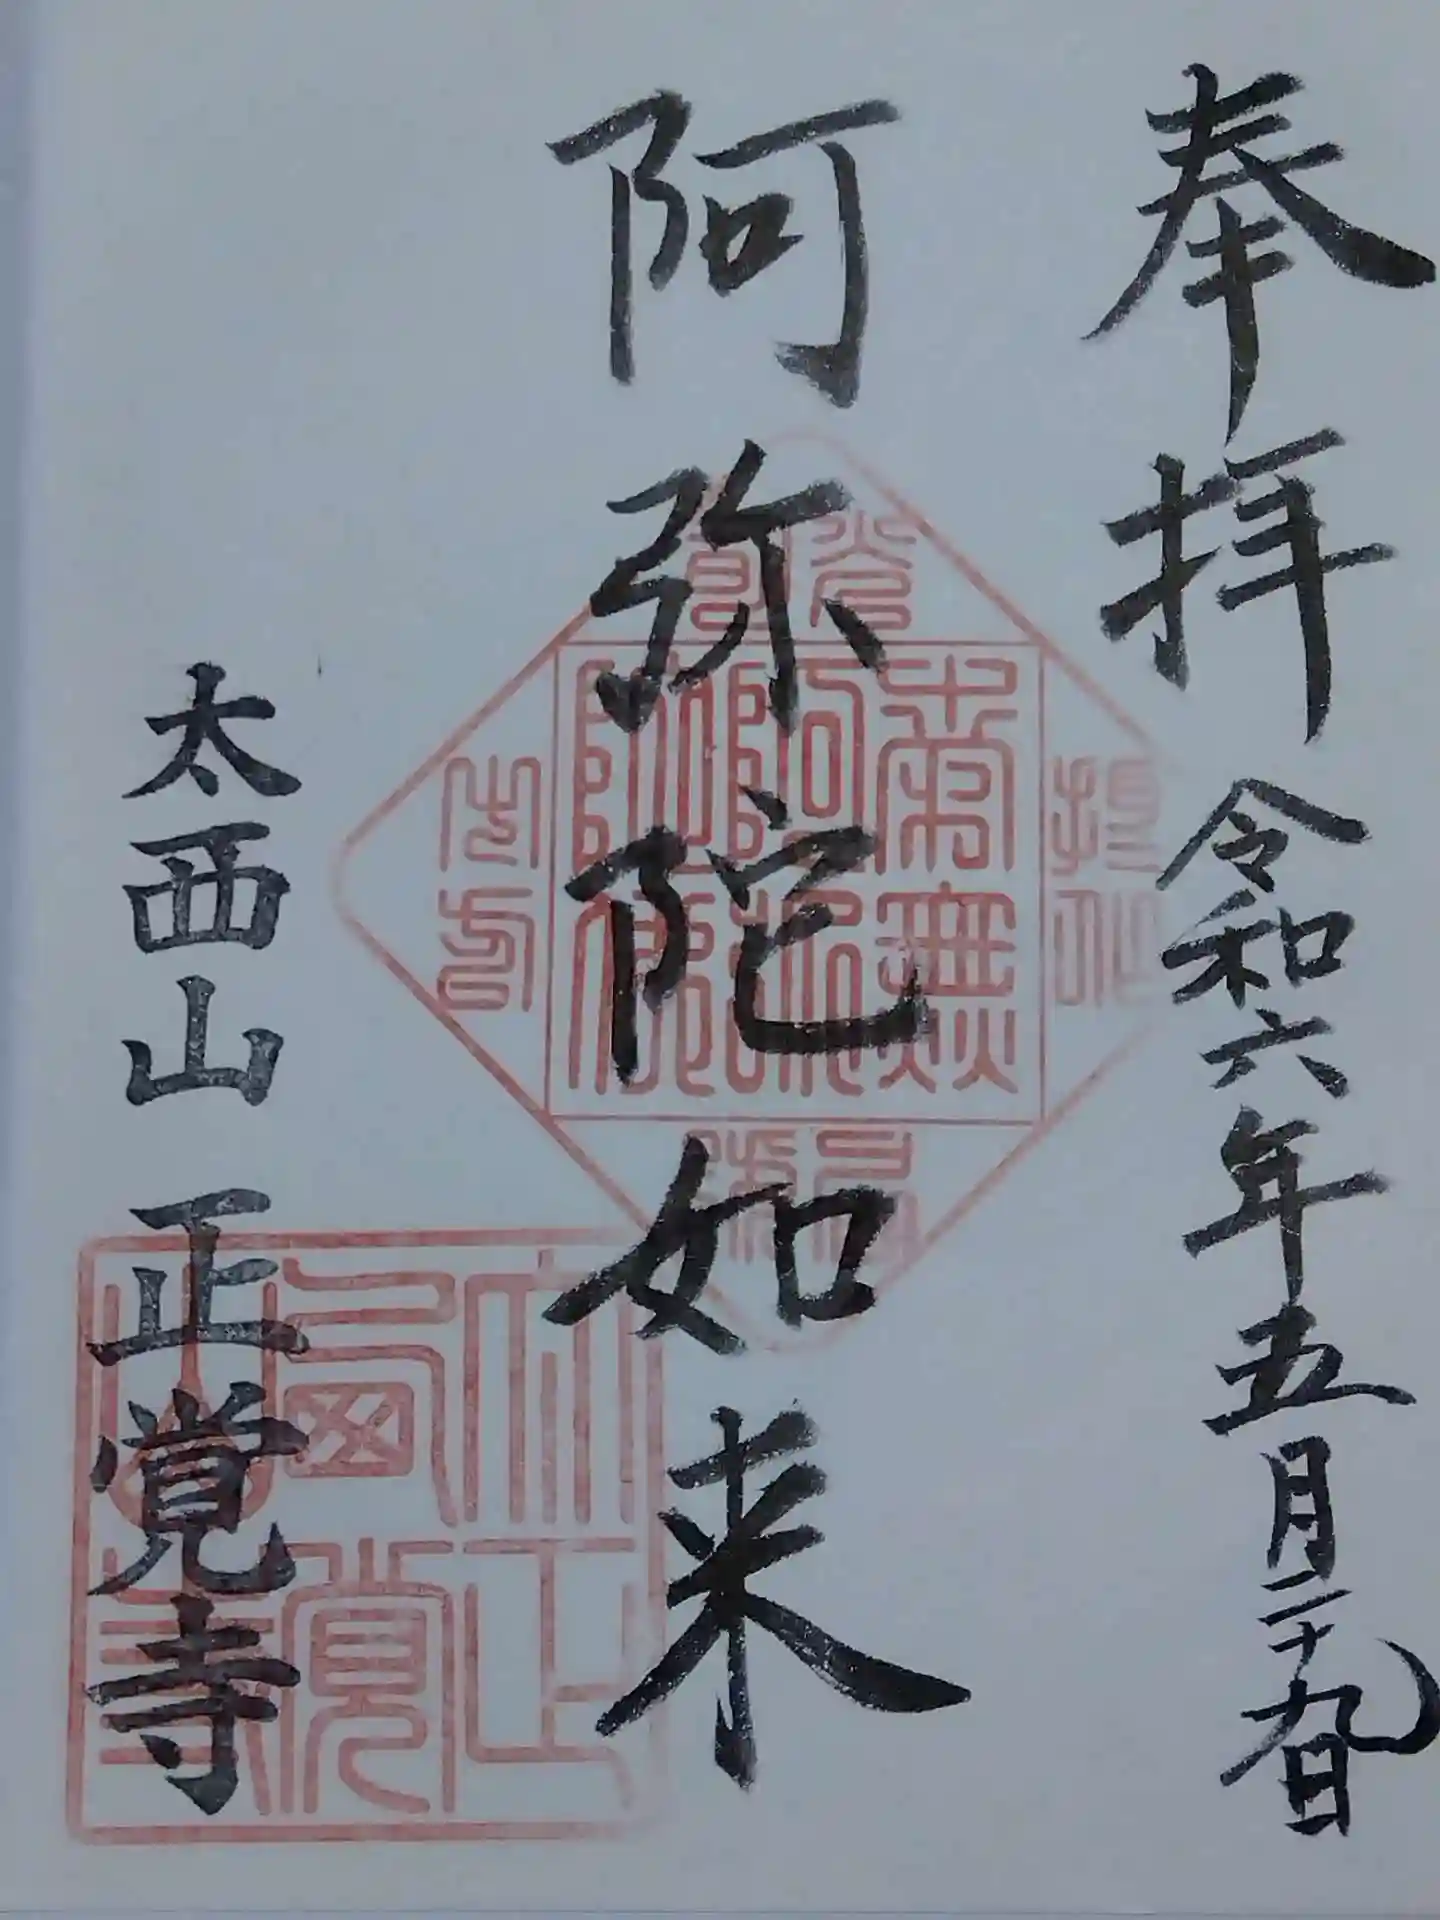 奉拝 令和六年五月二十九日
阿弥陀如来
太西山 正覚寺
南無阿弥陀佛
太西山正覚寺